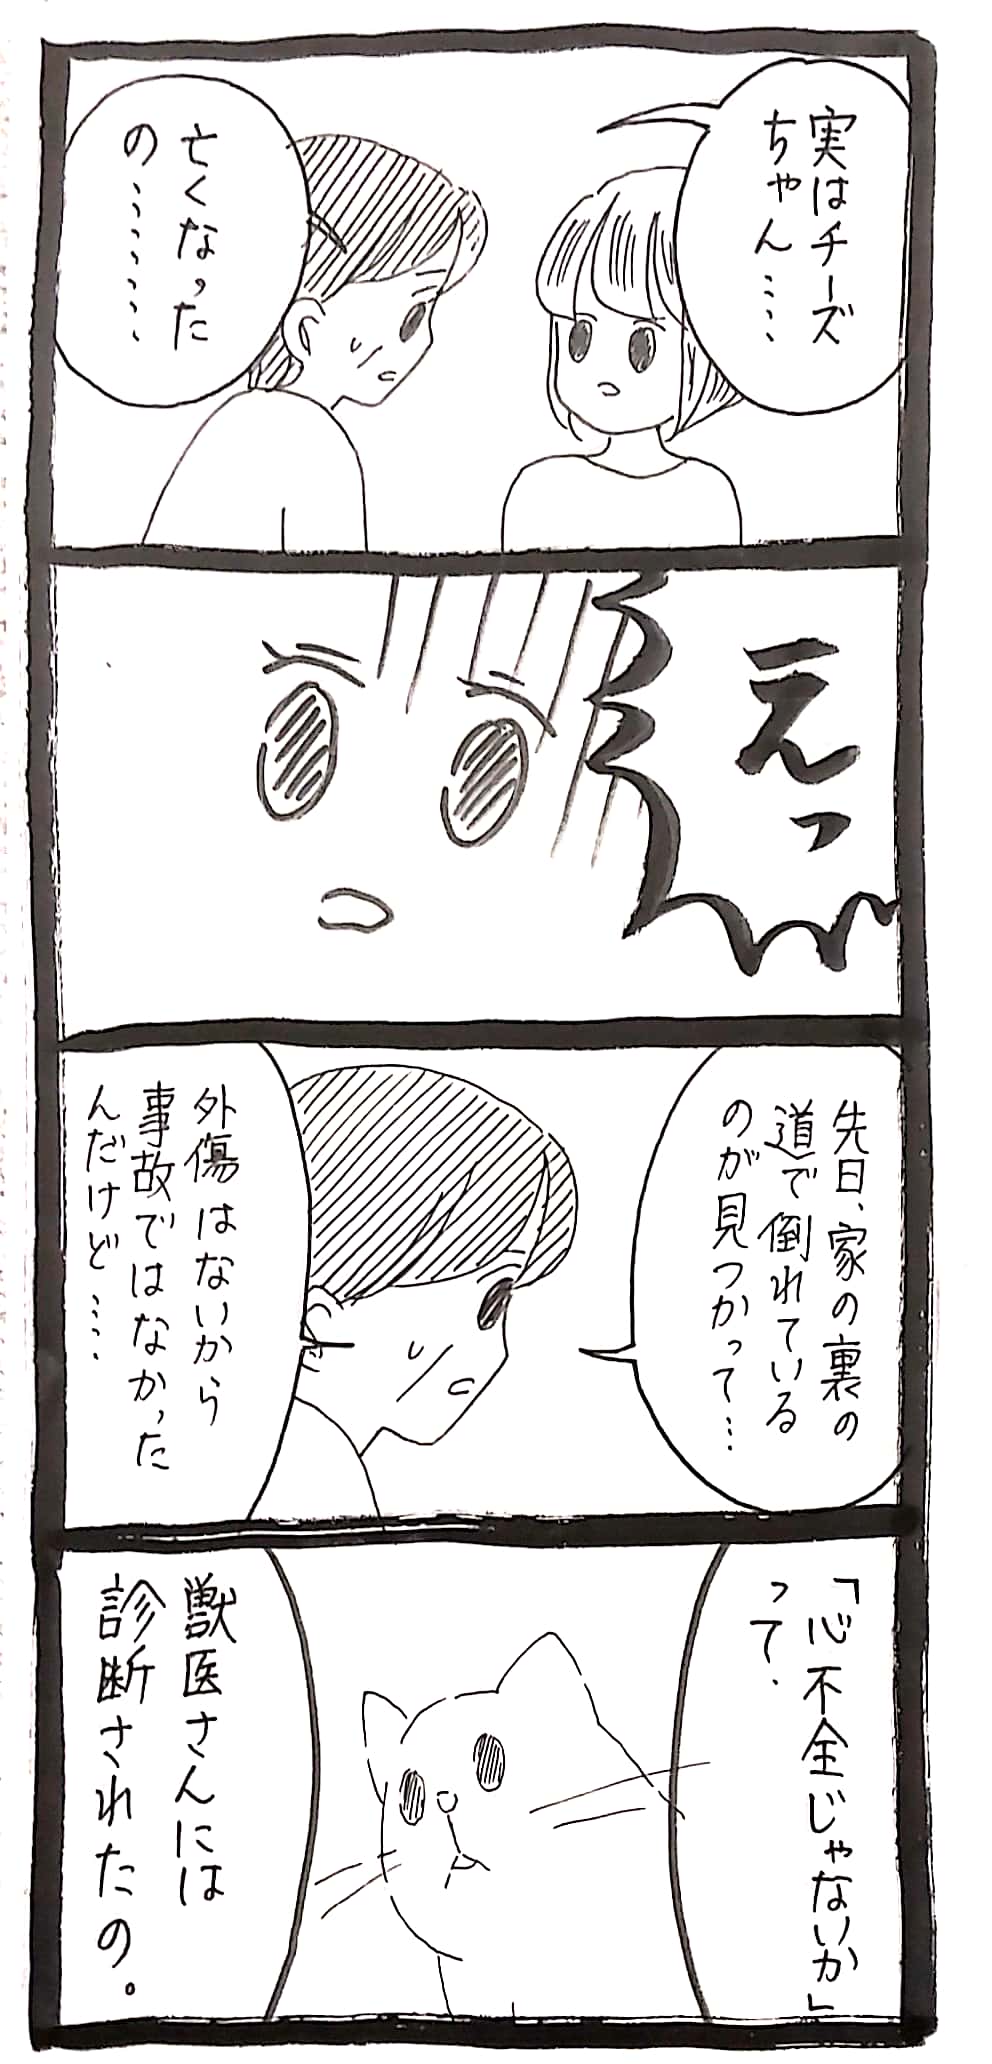 実はチーズ
ちゃん……
亡くなった
の……
えっ
先日、家の裏の
道で倒れている
のが見つかって…
外傷はないから
事故ではなかった
んだけど……
「心不全じゃないか」
って.
獣医さんには
診断されたの。